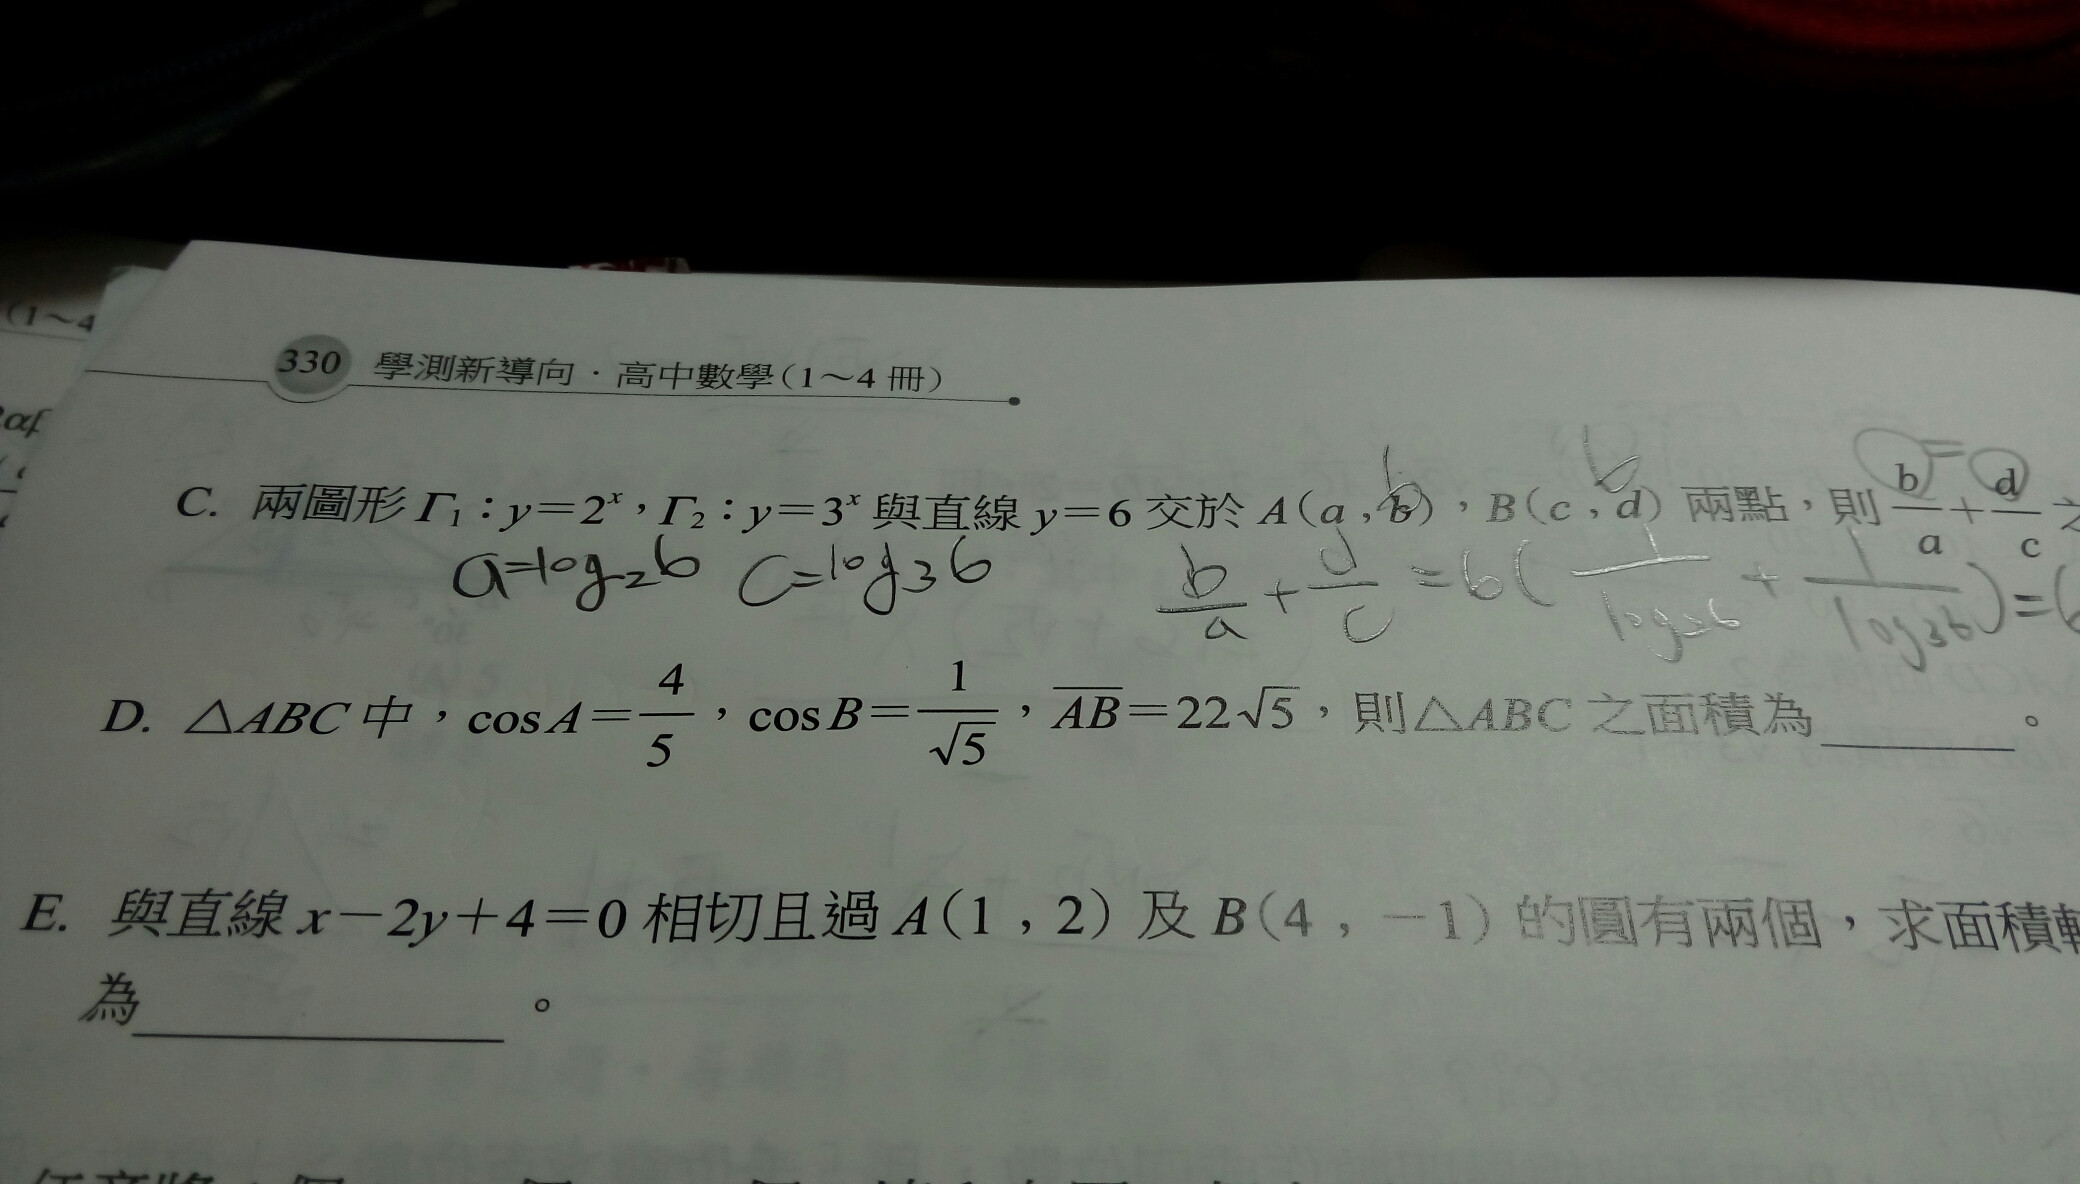 (1～4
330 學測新導向．高中數學(1～4 冊)
C. 兩圖形 Γ₁：y＝2ˣ，Γ₂：y＝3ˣ 與直線 y＝6 交於 A(a , b)，B(c , d) 兩點，則 b/a＋d/c 之
6 6 =
a=log₂6 c=log₃6 b/a + d/c = 6( 1/log₂6 + 1/log₃6 ) = 6
D. △ABC 中，cos A＝4/5，cos B＝1/√5，AB＝22√5，則△ABC 之面積為＿＿＿＿。
E. 與直線 x－2y＋4＝0 相切且過 A(1 , 2) 及 B(4 , －1) 的圓有兩個，求面積較
為＿＿＿＿＿＿。